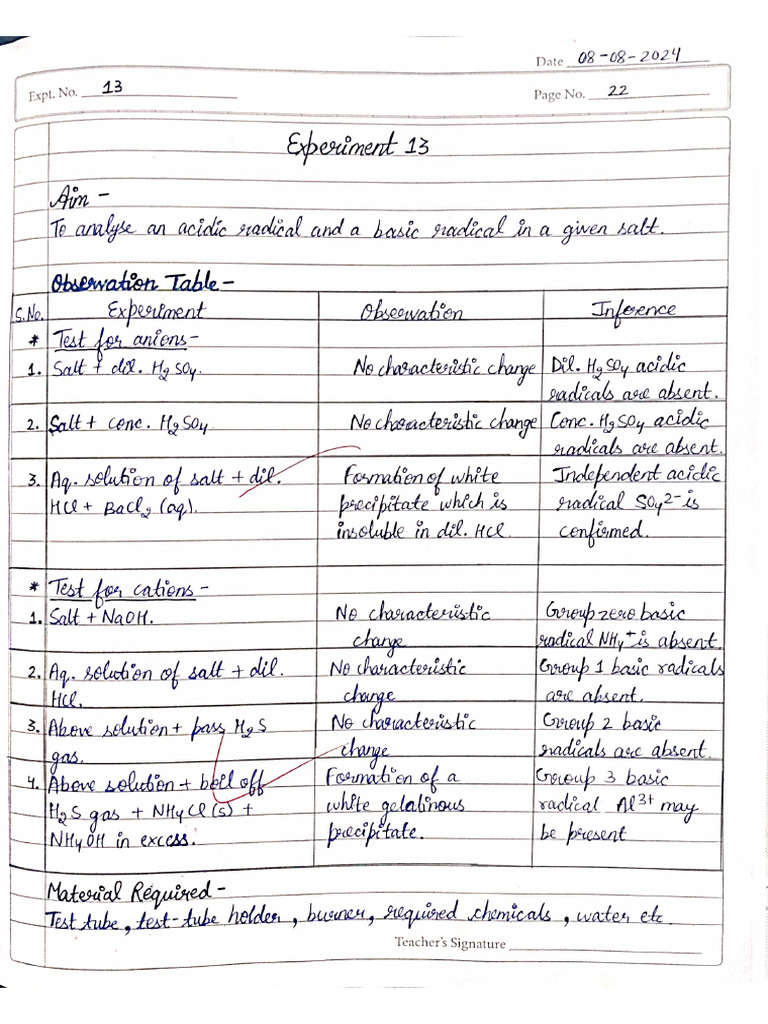 Date 08-08-2024
Expt. No. 13
Page No. 22
Experiment 13
Aim -
To analyse an acidic radical and a basic radical in a given salt.
Observation Table -
S.No. Experiment Observation Inference
* Test for anions -
1. Salt + dil. H2SO4. No characteristic change Dil. H2SO4 acidic
radicals are absent.
2. Salt + conc. H2SO4 No characteristic change Conc. H2SO4 acidic
radicals are absent.
3. Aq. solution of salt + dil. Formation of white Independent acidic
HCl + BaCl2 (aq). precipitate which is radical SO4 2- is
insoluble in dil. HCl. confirmed.
* Test for cations -
1. Salt + NaOH. No characteristic Group zero basic
change radical NH4+ is absent.
2. Aq. solution of salt + dil. No characteristic Group 1 basic radicals
HCl. change are absent.
3. Above solution + pass H2S No characteristic Group 2 basic
gas. change radicals are absent.
4. Above solution + boil off Formation of a Group 3 basic
H2S gas + NH4Cl (s) + white gelatinous radical Al3+ may
NH4OH in excess. precipitate. be present
Material Required -
Test tube, test-tube holder, burner, required chemicals, water etc.
Teacher's Signature